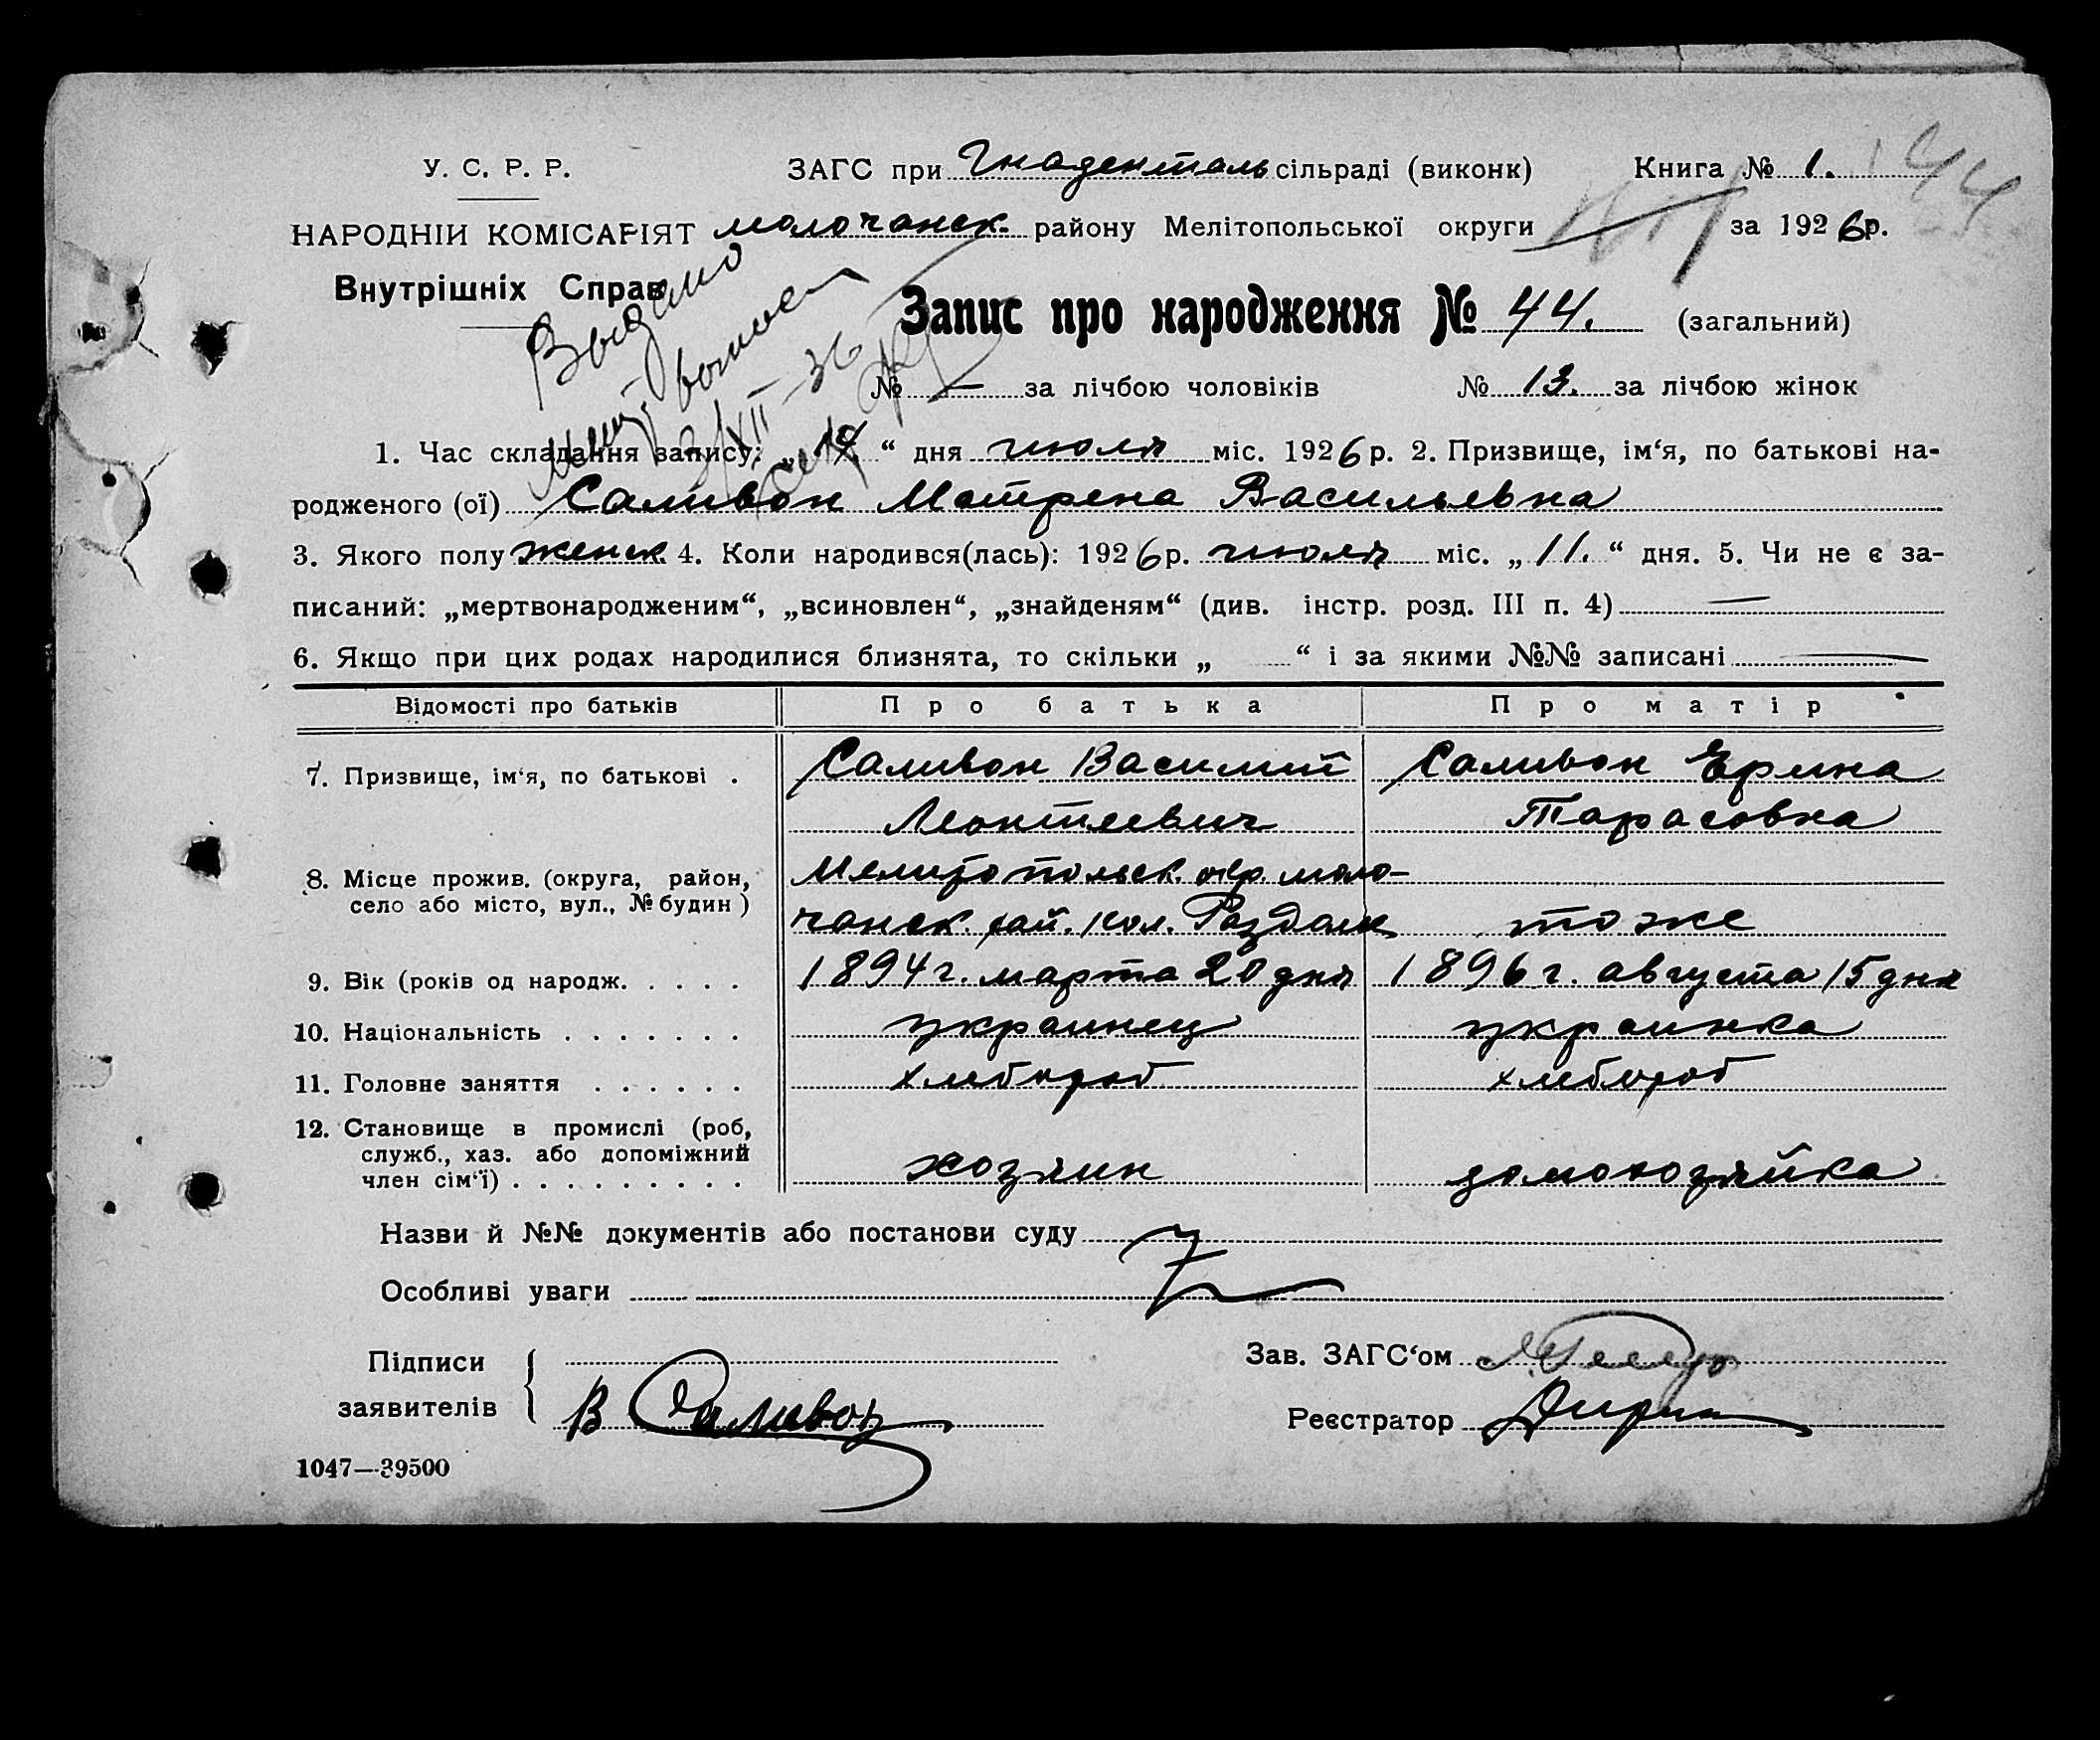 У. С. Р. Р.
ЗАГС при Гнаденталь сільраді (виконк) Книга № 1. 44
НАРОДНІЙ КОМІСАРІЯТ молочанск. району Мелітопольської округи за 1926р.
Внутрішніх Справ
Выдано
2/XII-36
Запис про народження № 44. (загальний)
№ — за лічбою чоловіків № 13. за лічбою жінок
1. Час складання запису: „ 14 “ дня июля міс. 1926р. 2. Призвище, ім‘я, по батькові на-
родженого (ої) Саливон Матрена Васильевна
3. Якого полу женск. 4. Коли народився(лась): 1926р. июля міс. „ 11. “ дня. 5. Чи не є за-
писаний: „мертвонародженим“, „всиновлен“, „знайденям“ (див. інстр. розд. III п. 4) —
6. Якщо при цих родах народилися близнята, то скільки „ “ і за якими №№ записані —
Відомості про батьків Про батька Про матір
7. Призвище, ім‘я, по батькові . Саливон Василий Саливон Ерина
Леонтиевич Тарасовна
8. Місце прожив. (округа, район, Мелитопольск. окр. моло-
село або місто, вул., № будин ) чанск. рай. кол. Раздол тоже
9. Вік (років од народж. . . . . 1894г. марта 20 дня 1896г. августа 15 дня
10. Національність . . . . . . . украинец украинка
11. Головне заняття . . . . . . хлебороб хлебороб
12. Становище в промислі (роб,
служб., хаз. або допоміжний
член сім‘ї) . . . . . . . . . хозяин домохозяйка
Назви й №№ документів або постанови суду
Особливі уваги
Підписи Зав. ЗАГС‘ом
заявителів В Саливон Реєстратор
1047—39500